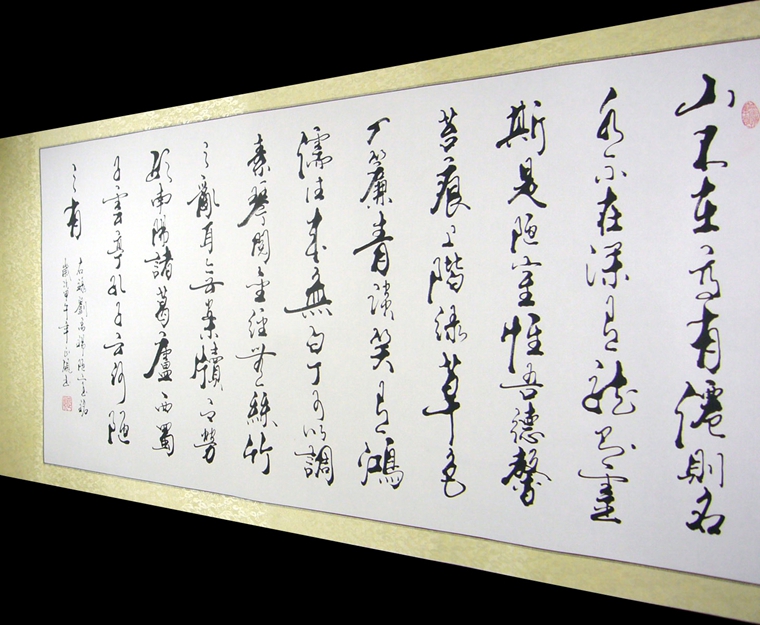 山不在高有僊則名
水不在深有龍則靈
斯是陋室惟吾德馨
苔痕上階綠草色
入簾青談笑有鴻
儒往來無白丁可以調
素琴閱金經無絲竹
之亂耳無案牘之勞
形南陽諸葛廬西蜀
子雲亭孔子云何陋
之有
右錄劉禹錫陋室銘
歲次甲午年